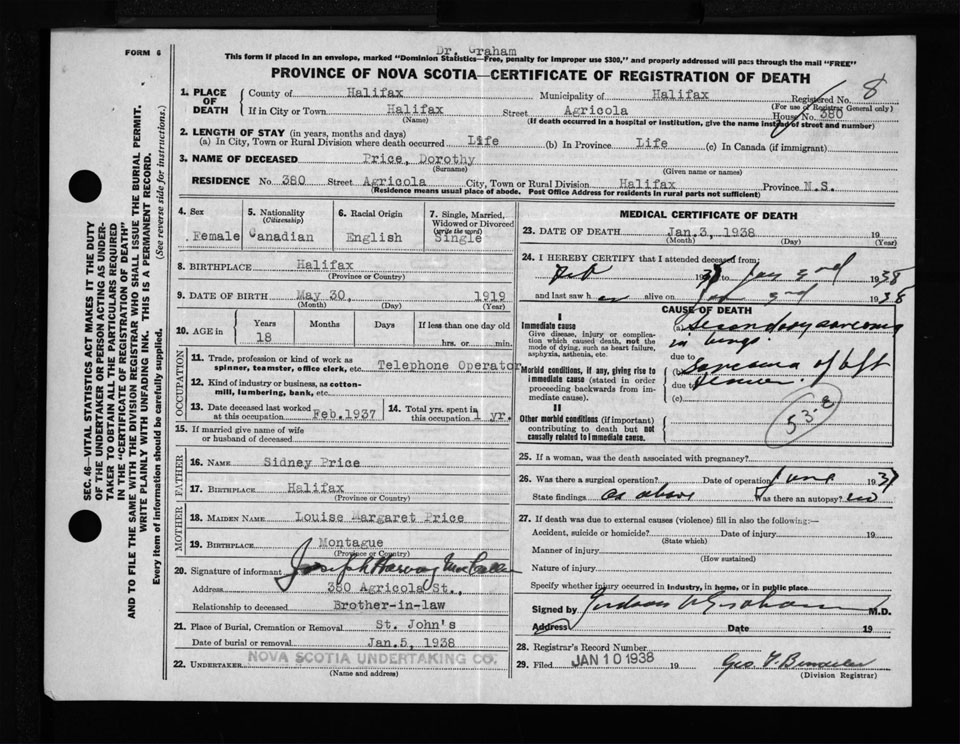 Dr. Graham
FORM 6
This form if placed in an envelope, marked "Dominion Statistics—Free, penalty for improper use $300," and properly addressed will pass through the mail "FREE"
PROVINCE OF NOVA SCOTIA—CERTIFICATE OF REGISTRATION OF DEATH
SEC. 46—VITAL STATISTICS ACT MAKES IT THE DUTY
OF THE UNDERTAKER OR PERSON ACTING AS UNDER-
TAKER TO OBTAIN ALL THE PARTICULARS REQUIRED
IN THE "CERTIFICATE OF REGISTRATION OF DEATH"
AND TO FILE THE SAME WITH THE DIVISION REGISTRAR WHO SHALL ISSUE THE BURIAL PERMIT.
WRITE PLAINLY WITH UNFADING INK. THIS IS A PERMANENT RECORD.
Every item of information should be carefully supplied. (See reverse side for instructions.)
1. PLACE OF DEATH County of Halifax Municipality of Halifax Registered No. 8
(For use of Registrar General only)
If in City or Town Halifax Street Agricola House No. 380
(Name) (If death occurred in a hospital or institution, give the name instead of street and number)
2. LENGTH OF STAY (in years, months and days)
(a) In City, Town or Rural Division where death occurred Life (b) In Province Life (c) In Canada (if immigrant)
3. NAME OF DECEASED Price, Dorothy
(Surname) (Given name or names)
RESIDENCE No. 380 Street Agricola City, Town or Rural Division Halifax Province N.S.
(Residence means usual place of abode. Post Office Address for residents in rural parts not sufficient)
4. Sex 5. Nationality (Citizenship) 6. Racial Origin 7. Single, Married, Widowed or Divorced (write the word)
Female Canadian English Single
8. BIRTHPLACE Halifax
(Province or Country)
9. DATE OF BIRTH May 30, 1919
(Month) (Day) (Year)
10. AGE in Years Months Days If less than one day old
18 hrs. or min.
OCCUPATION
11. Trade, profession or kind of work as spinner, teamster, office clerk, etc. Telephone Operator
12. Kind of industry or business, as cotton-mill, lumbering, bank, etc.
13. Date deceased last worked at this occupation Feb.1937
14. Total yrs. spent in this occupation 1 yr.
15. If married give name of wife or husband of deceased
FATHER
16. NAME Sidney Price
17. BIRTHPLACE Halifax
(Province or Country)
MOTHER
18. MAIDEN NAME Louise Margaret Price
19. BIRTHPLACE Montague
(Province or Country)
20. Signature of informant Joseph Harvey
Address 380 Agricola St.,
Relationship to deceased Brother-in-law
21. Place of Burial, Cremation or Removal St. John's
Date of burial or removal Jan.5, 1938
22. UNDERTAKER NOVA SCOTIA UNDERTAKING CO.
(Name and address)
MEDICAL CERTIFICATE OF DEATH
23. DATE OF DEATH Jan.3, 1938 19
(Month) (Day) (Year)
24. I HEREBY CERTIFY that I attended deceased from:
Feb 1937 to Jan 3rd 1938
and last saw her alive on Jan 3rd 1938
CAUSE OF DEATH
I
Immediate cause
Give disease, injury or complication which caused death, not the mode of dying, such as heart failure, asphyxia, asthenia, etc.
(a) Secondary sarcoma
in lungs.
due to
Morbid conditions, if any, giving rise to immediate cause (stated in order proceeding backwards from immediate cause).
(b) Sarcoma of left
due to femur.
(c)
II
Other morbid conditions (if important) contributing to death but not causally related to immediate cause.
53-8
25. If a woman, was the death associated with pregnancy?
26. Was there a surgical operation? Date of operation June 1937
State findings as above Was there an autopsy? no
27. If death was due to external causes (violence) fill in also the following:—
Accident, suicide or homicide? Date of injury 19
(State which)
Manner of injury
(How sustained)
Nature of injury
Specify whether injury occurred in industry, in home, or in public place
Signed by Judson V Graham M.D.
Address Date 19
28. Registrar's Record Number
29. Filed JAN 10 1938 19 Geo. F.
(Division Registrar)